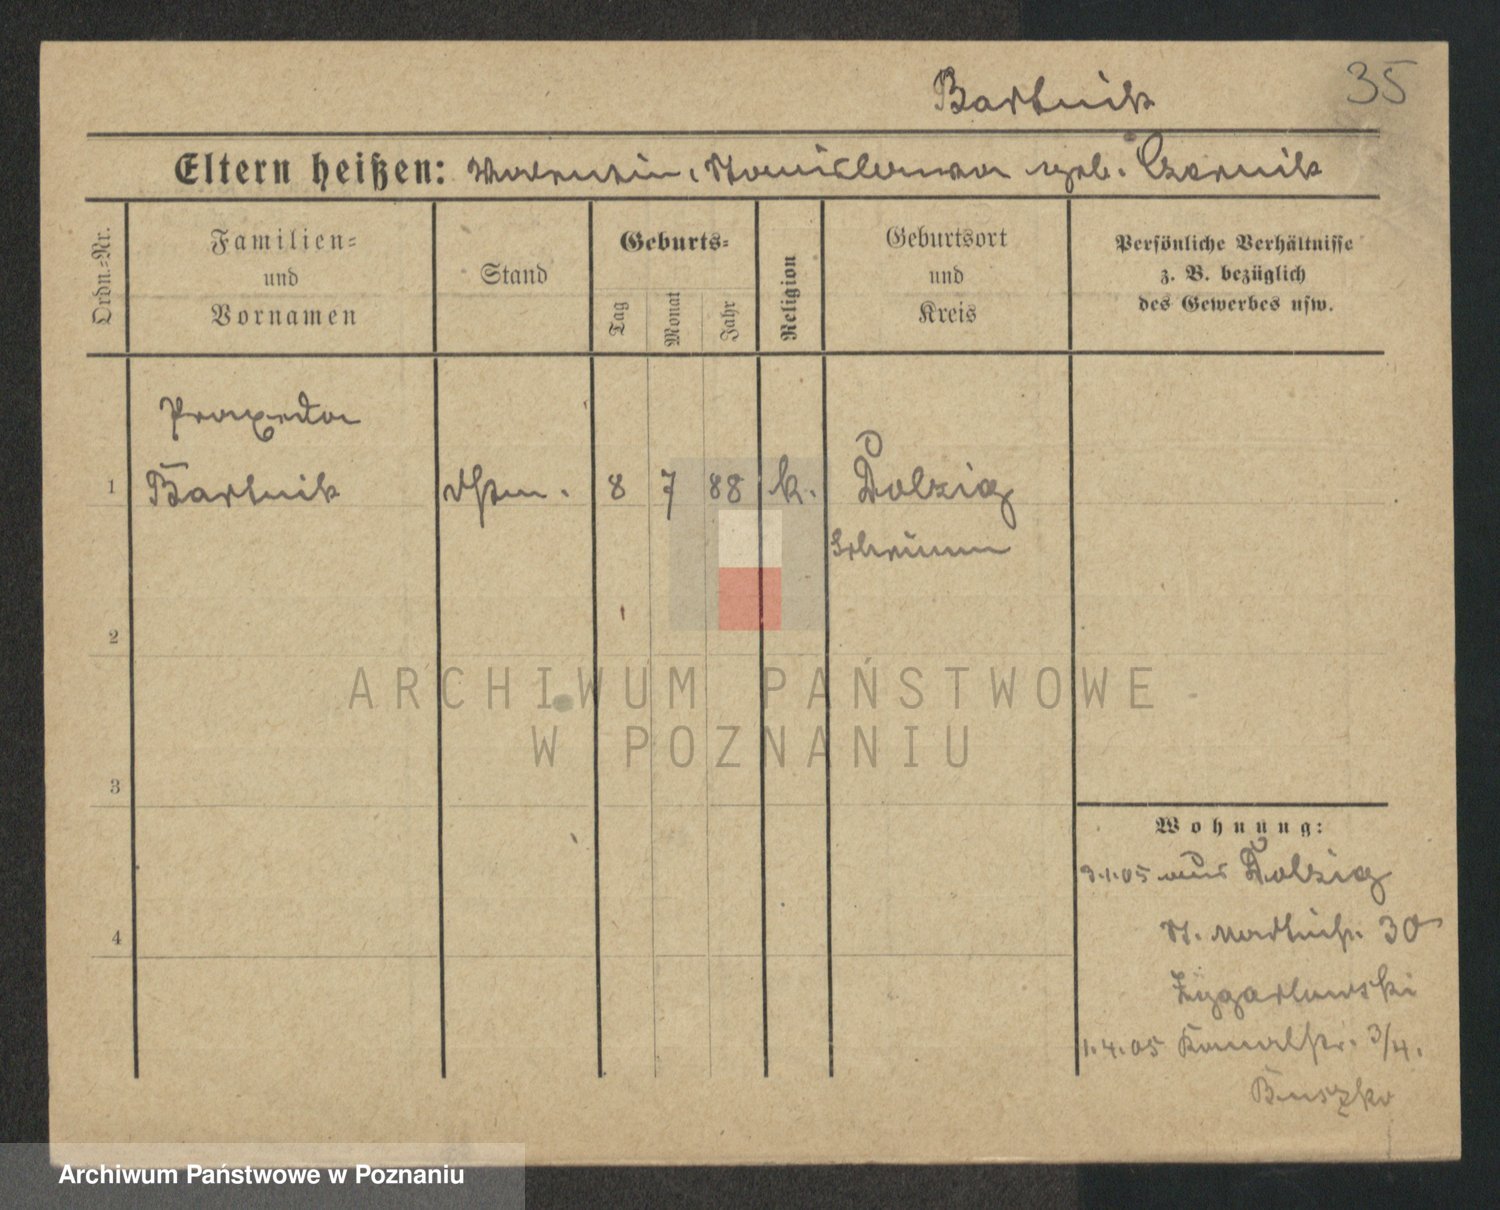 35
Bartnik
Eltern heißen: Valentin, Stanislawa geb. Czernik
Ordn.-Nr.
Familien-
und
Vornamen
Stand
Geburts-
Tag
Monat
Jahr
Religion
Geburtsort
und
Kreis
Persönliche Verhältnisse
z. B. bezüglich
des Gewerbes usw.
Praxeda
1 Bartnik 8 7 88 k. Dolzig
Schrimm
2
ARCHIWUM PAŃSTWOWE
W POZNANIU
3
Wohnung:
3.1.05 aus Dolzig
St. Martinstr. 30
4
1.4.05 Kanalstr. 3/4.
Buszko
Archiwum Państwowe w Poznaniu